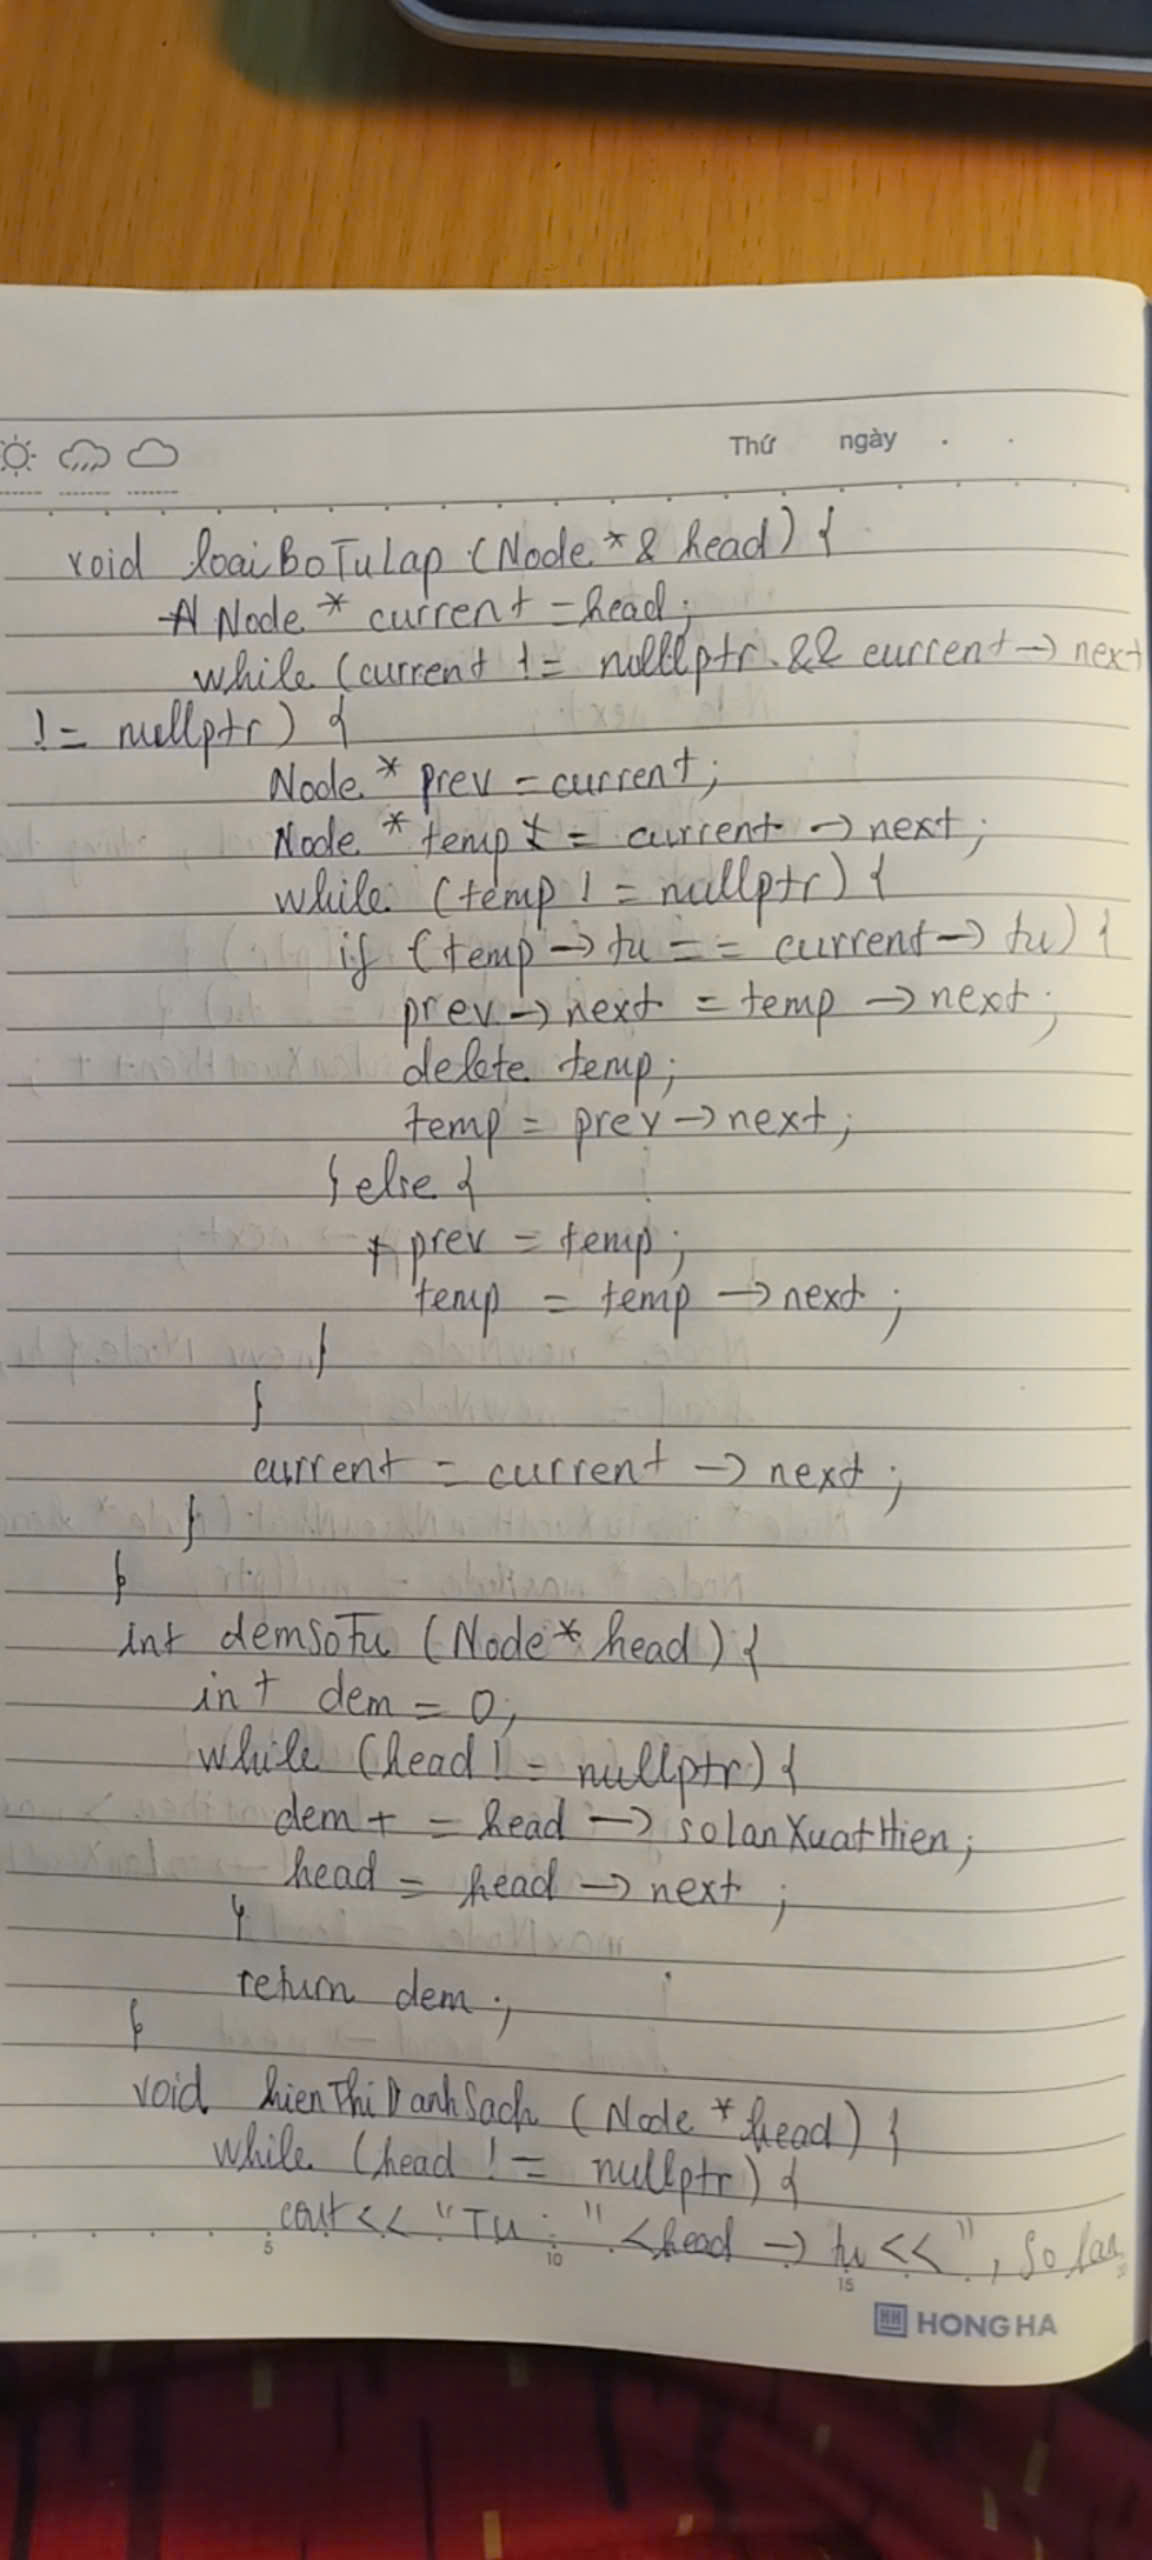 Thứ ngày . .
void loaiBoTuLap (Node *& head) {
Node * current = head;
while (current != nullptr && current → next
!= nullptr) {
Node * prev = current;
Node * temp = current → next;
while (temp != nullptr) {
if (temp → tu == current → tu) {
prev → next = temp → next;
delete temp;
temp = prev → next;
} else {
prev = temp;
temp = temp → next;
}
}
current = current → next;
}
}
int demSoTu (Node* head) {
int dem = 0;
while (head != nullptr) {
dem += head → solanXuatHien;
head = head → next;
}
return dem;
}
void hienThiDanhSach (Node * head) {
while (head != nullptr) {
cout << "Tu : " < head → tu << ", So lan
5 10 15
HH HONG HA